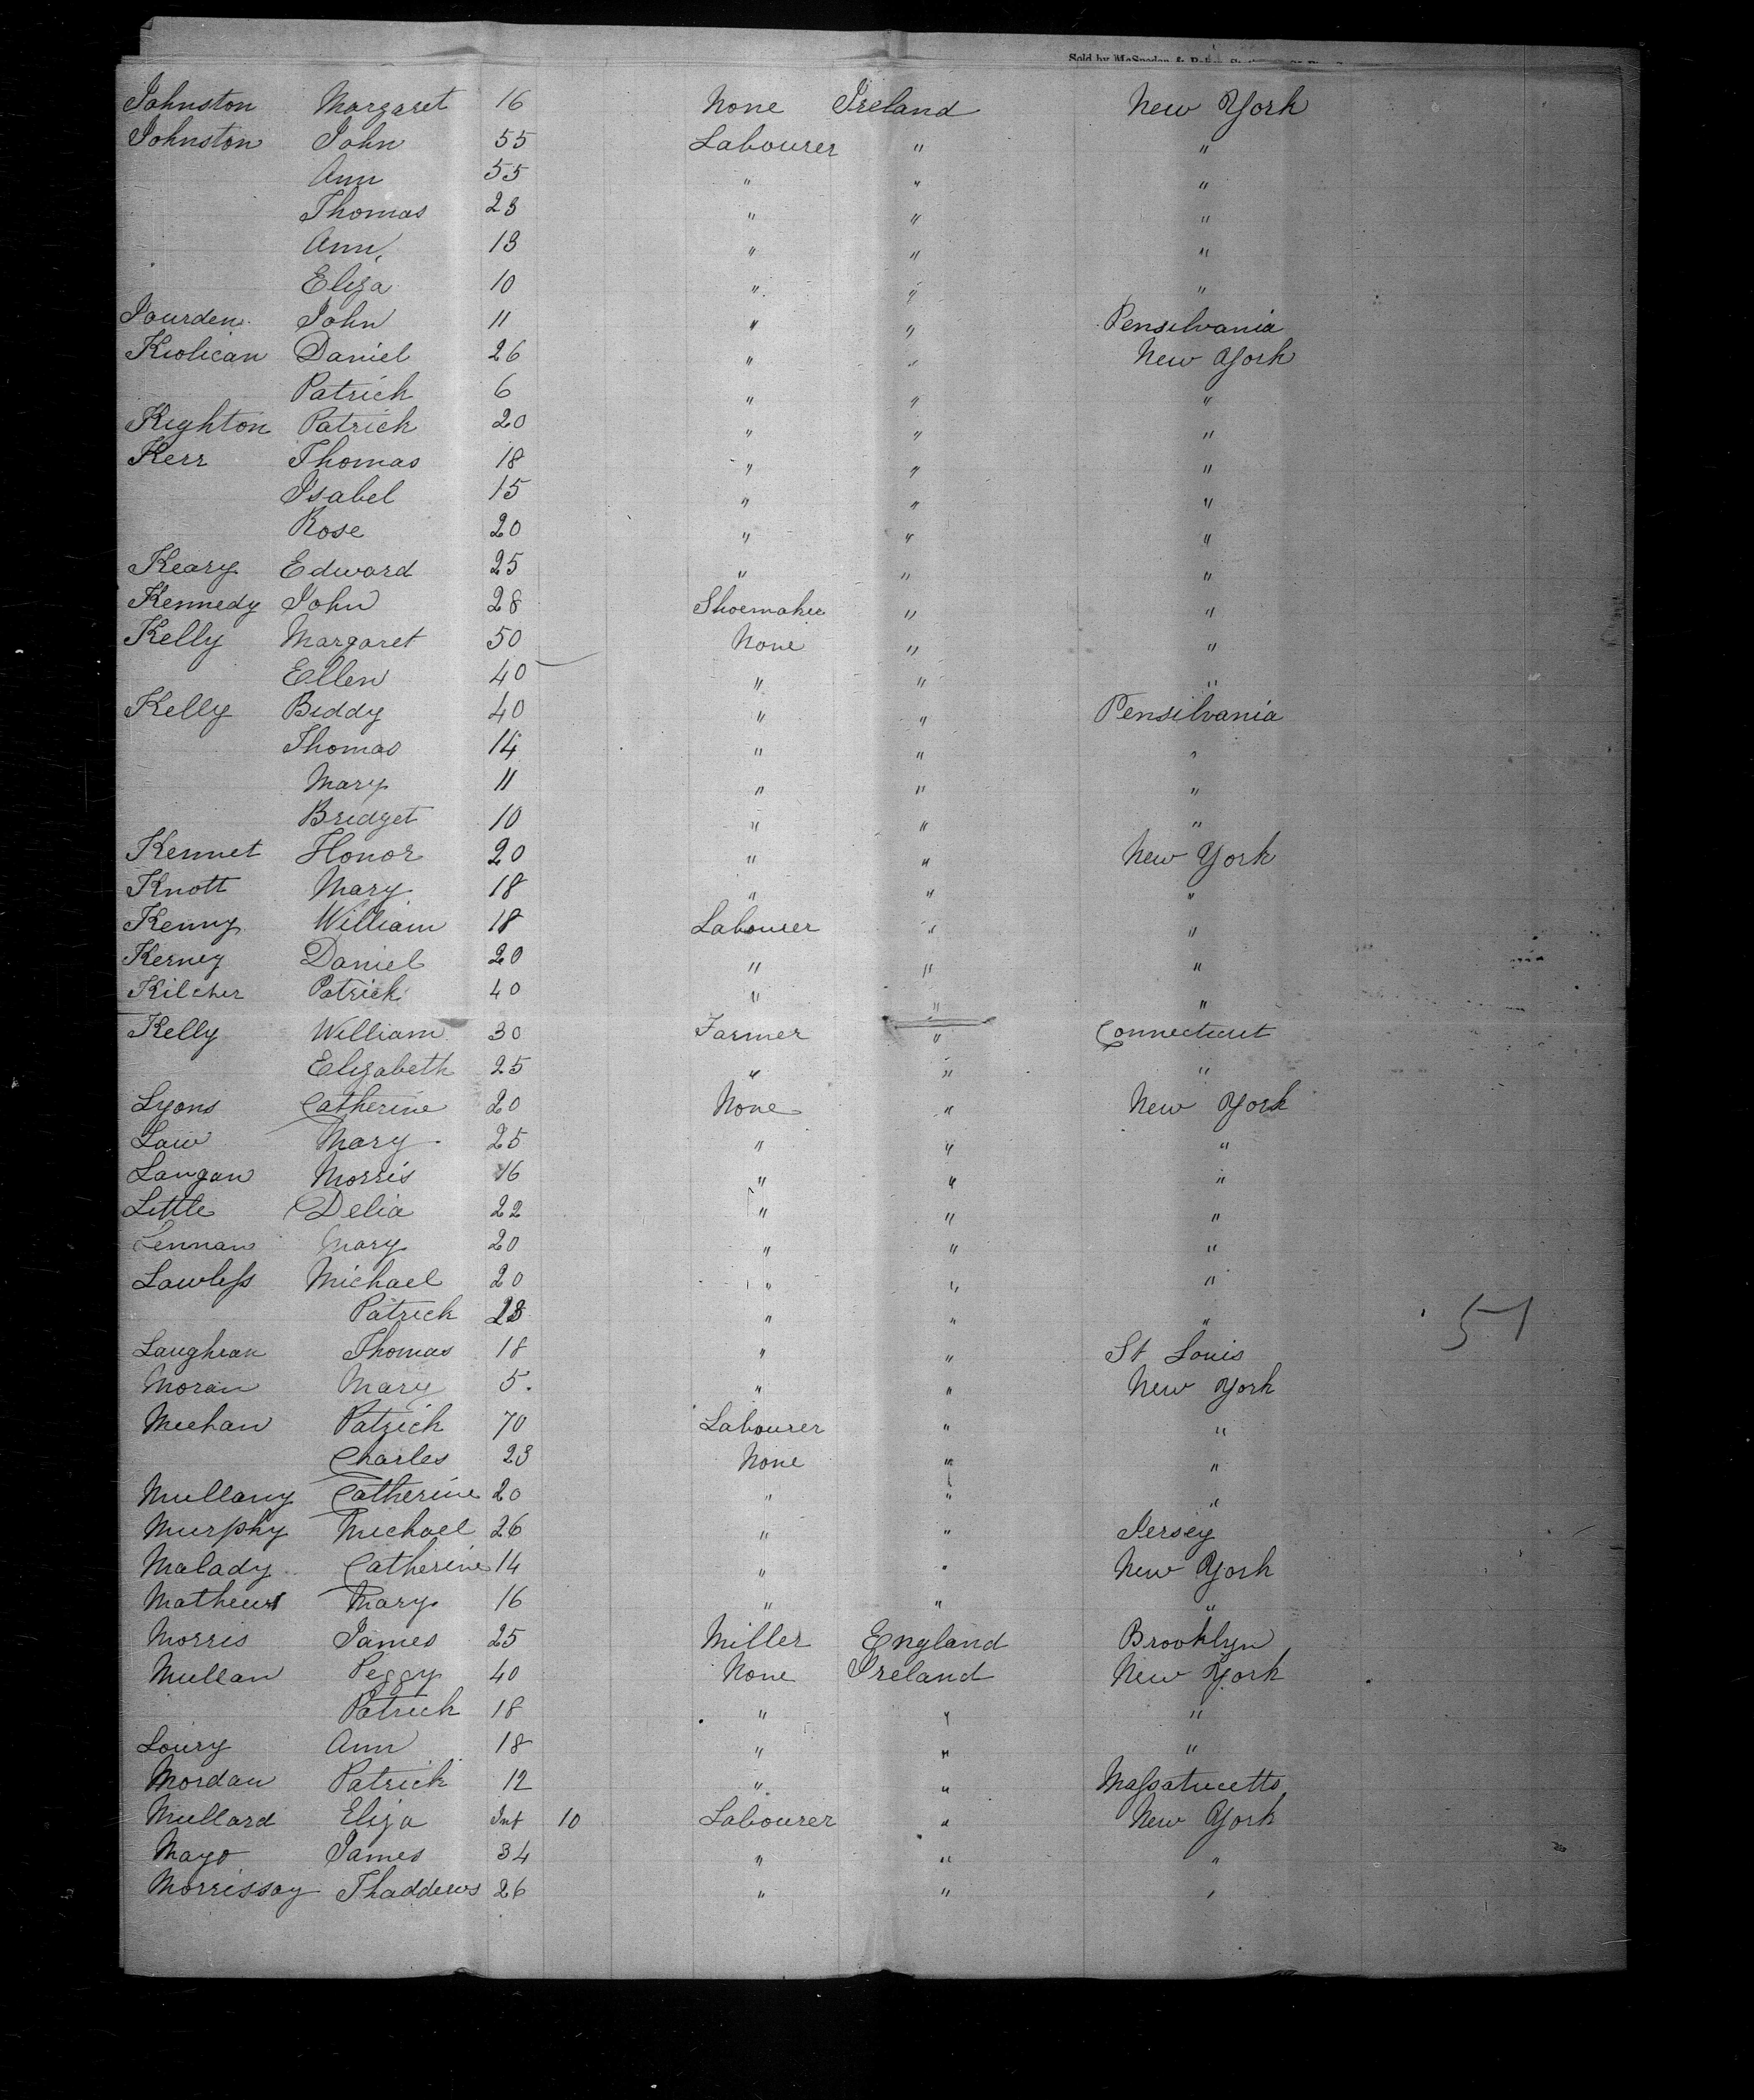 Sold by McSpedon & Baker
Johnston Margaret 16 None Ireland New York
Johnston John 55 Labourer " "
Ann 55 " " "
Thomas 23 " " "
Ann 13 " " "
Eliza 10 " " "
Jourden John 11 " " Pensilvania
Kiolican Daniel 26 " " New York
Patrick 6 " " "
Kighton Patrick 20 " " "
Kerr Thomas 18 " " "
Isabel 15 " " "
Rose 20 " " "
Keary Edward 25 " " "
Kennedy John 28 Shoemaker " "
Kelly Margaret 50 None " "
Ellen 40 " " "
Kelly Biddy 40 " " Pensilvania
Thomas 14 " " "
Mary 11 " " "
Bridget 10 " " "
Kennet Honor 20 " " New York
Knott Mary 18 " " "
Kenny William 18 Labourer " "
Kerney Daniel 20 " " "
Kilcher Patrick 40 " " "
Kelly William 30 Farmer " Connecticut
Elizabeth 25 " " "
Lyons Catherine 20 None " New York
Law Mary 25 " " "
Langan Morris 16 " " "
Little Delia 22 " " "
Lennan Mary 20 " " "
Lawless Michael 20 " " "
Patrick 23 " " "
Laughran Thomas 18 " " St Louis
Moran Mary 5. " " New York
Meehan Patrick 70 Labourer " "
Charles 23 None " "
Mullany Catherine 20 " " "
Murphy Michael 26 " " Jersey
Malady Catherine 14 " " New York
Mathews Mary 16 " " "
Morris James 25 Miller England Brooklyn
Mullan Peggy 40 None Ireland New York
Patrick 18 " " "
Loury Ann 18 " " "
Mordan Patrick 12 " " Massatucetts
Mullard Eliza Inf 10 Labourer " New York
Mayo James 34 " " "
Morrissay Thaddews 26 " " "
51